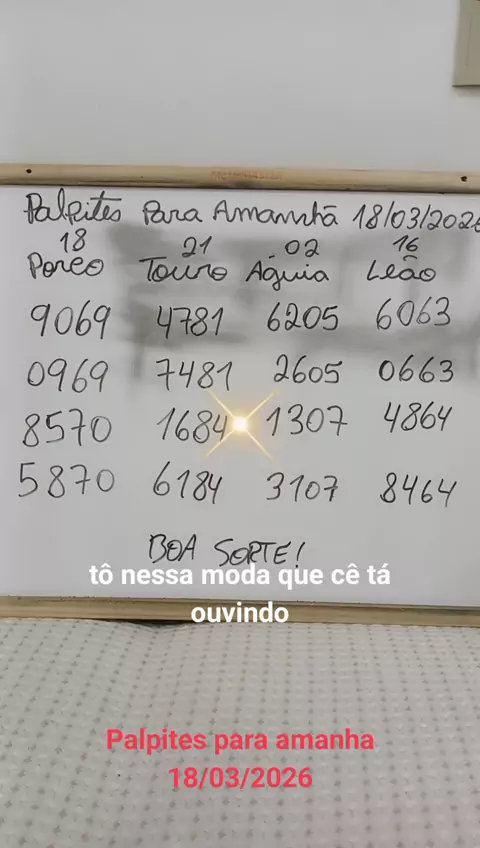 Palpites Para Amanhã 18/03/2026
18 21 02 16
Porco Touro Águia Leão
9069 4781 6205 6063
0969 7481 2605 0663
8570 1684 1307 4864
5870 6184 3107 8464
BOA SORTE!
tô nessa moda que cê tá
ouvindo
Palpites para amanha
18/03/2026